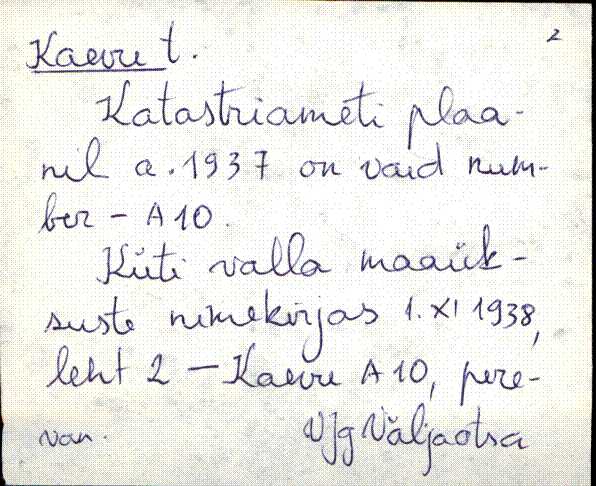 2
Kaevu t.
Katastriameti plaa-
nil a. 1937 on vaid num-
ber - A 10.
Küti valla maaük-
suste nimekirjas 1. XI 1938,
leht 2 - Kaevu A 10, pere-
van. VJg Väljaotsa